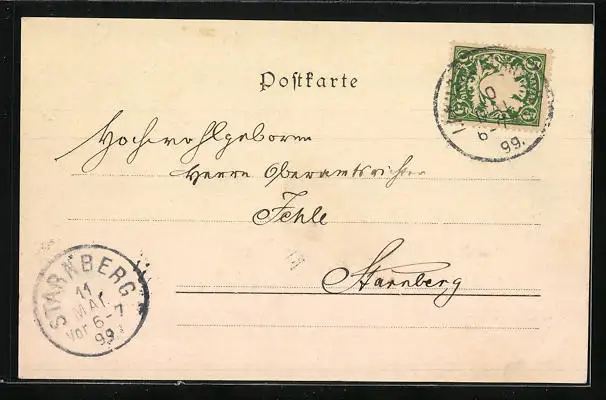 Postkarte
5
5
99.
Hochwohlgeboren
Herrn Oberamtsrichter
Fehle
Starnberg
STARNBERG
11
MAI.
Vor 6-7
99